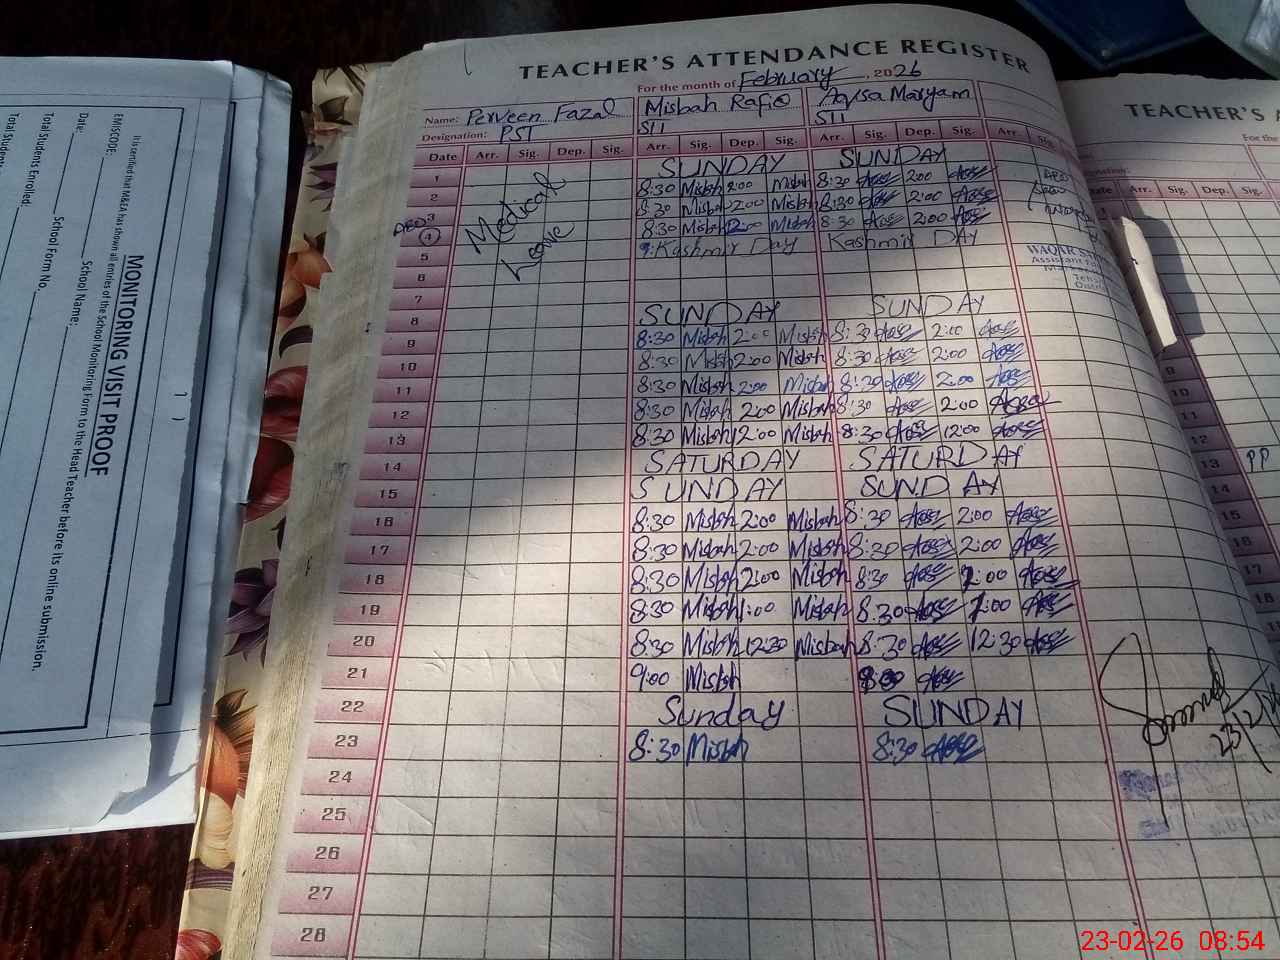 TEACHER'S ATTENDANCE REGISTER
For the month of February, 2026
Name: Perveen Fazal Misbah Rafiq Aqsa Maryam
Designation: PST STI STI
Date Arr. Sig. Dep. Sig. Arr. Sig. Dep. Sig. Arr. Sig. Dep. Sig. Arr. Sig.
Medical Leave
1 SUNDAY SUNDAY
2 8:30 Misbah 2:00 Misbah 8:30 2:00
3 8:30 Misbah 2:00 Misbah 8:30 2:00
4 8:30 Misbah 2:00 Misbah 8:30 2:00
5 Kashmir Day Kashmir DAY
6
7
8 SUNDAY SUNDAY
9 8:30 Misbah 2:00 Misbah 8:30 2:00
10 8:30 Misbah 2:00 Misbah 8:30 2:00
11 8:30 Misbah 2:00 Misbah 8:30 2:00
12 8:30 Misbah 2:00 Misbah 8:30 2:00
13 8:30 Misbah 12:00 Misbah 8:30 12:00
14 SATURDAY SATURDAY
15 SUNDAY SUNDAY
16 8:30 Misbah 2:00 Misbah 8:30 2:00
17 8:30 Misbah 2:00 Misbah 8:30 2:00
18 8:30 Misbah 2:00 Misbah 8:30 :00
19 8:30 Misbah 1:00 Misbah 8:30 1:00
20 8:30 Misbah 12:30 Misbah 8:30 12:30
21 9:00 Misbah
22 Sunday SUNDAY
23 8:30 Misbah 8:30
24
25
26
27
28
23/2/26
MONITORING VISIT PROOF
It is certified that M&EA has shown all entries of the School Monitoring Form to the Head Teacher before its online submission.
EMISCODE: School Name:
Date: School Form No.
Total Students Enrolled:
Total Students
TEACHER'S A
For the
Date Arr. Sig. Dep. Sig.
9
10
11
12
13 PP
14
15
16
17
18
23-02-26 08:54